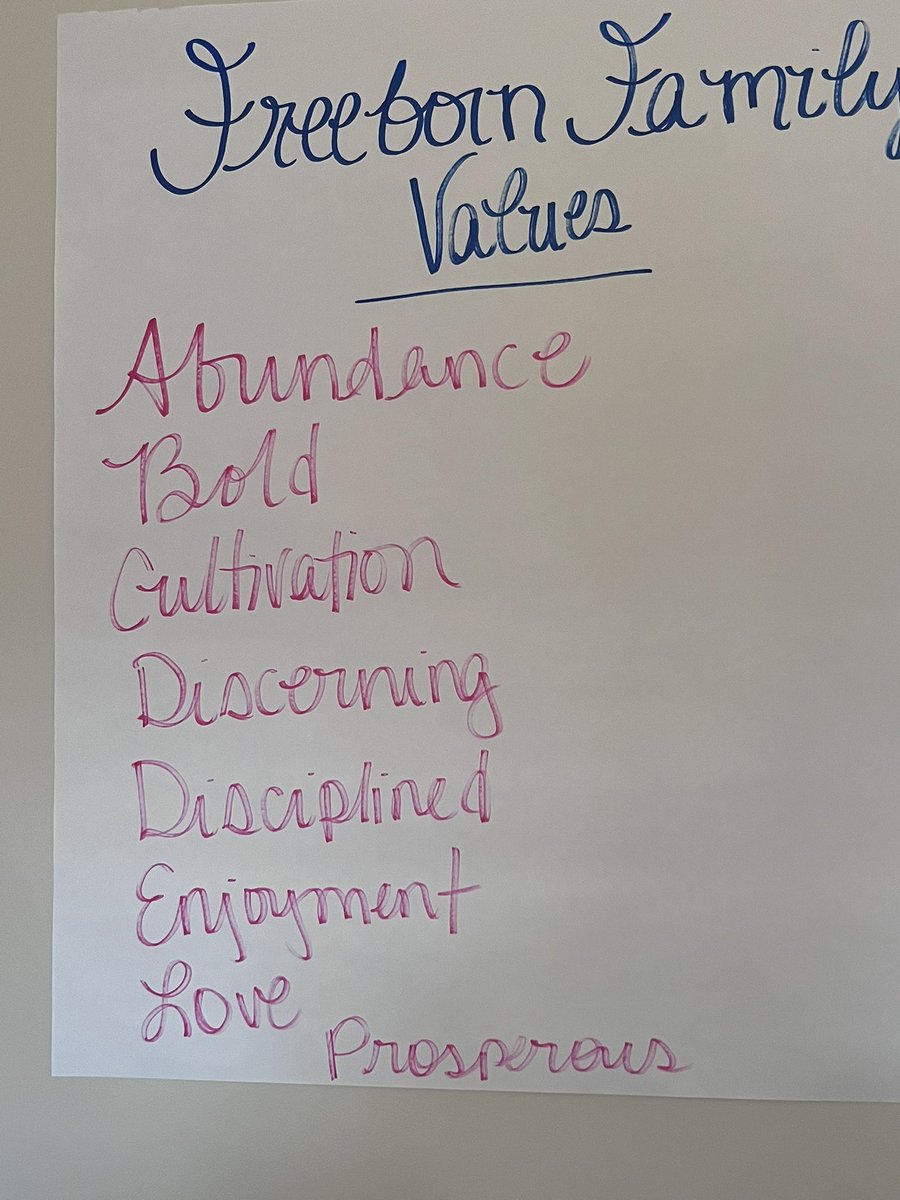 Freeborn Family
Values
Abundance
Bold
Cultivation
Discerning
Disciplined
Enjoyment
Love
Prosperous